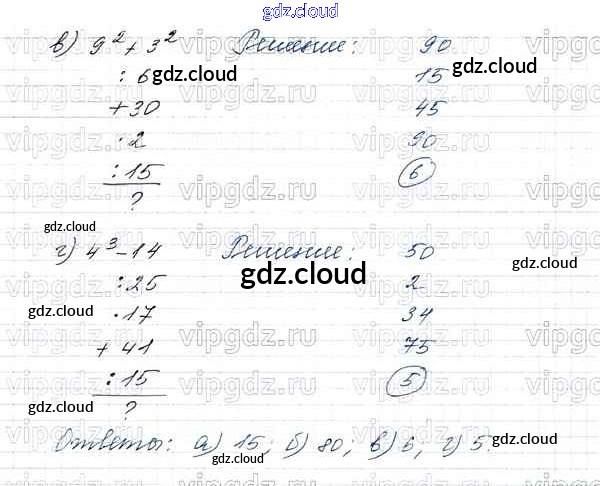 gdz.cloud
в) 9² + 3² Решение: 90
: 6 15
gdz.cloud gdz.cloud
+ 30 45
· 2 90
: 15 6
?
gdz.cloud
г) 4³ - 14 Решение: 50
gdz.cloud gdz.cloud
: 25 2
· 17 34
+ 41 75
: 15 5
gdz.cloud gdz.cloud
?
Ответы: а) 15; б) 80; в) 6; г) 5.
gdz.cloud
vipgdz.ru vipgdz.ru vipgdz.ru vipgdz.ru